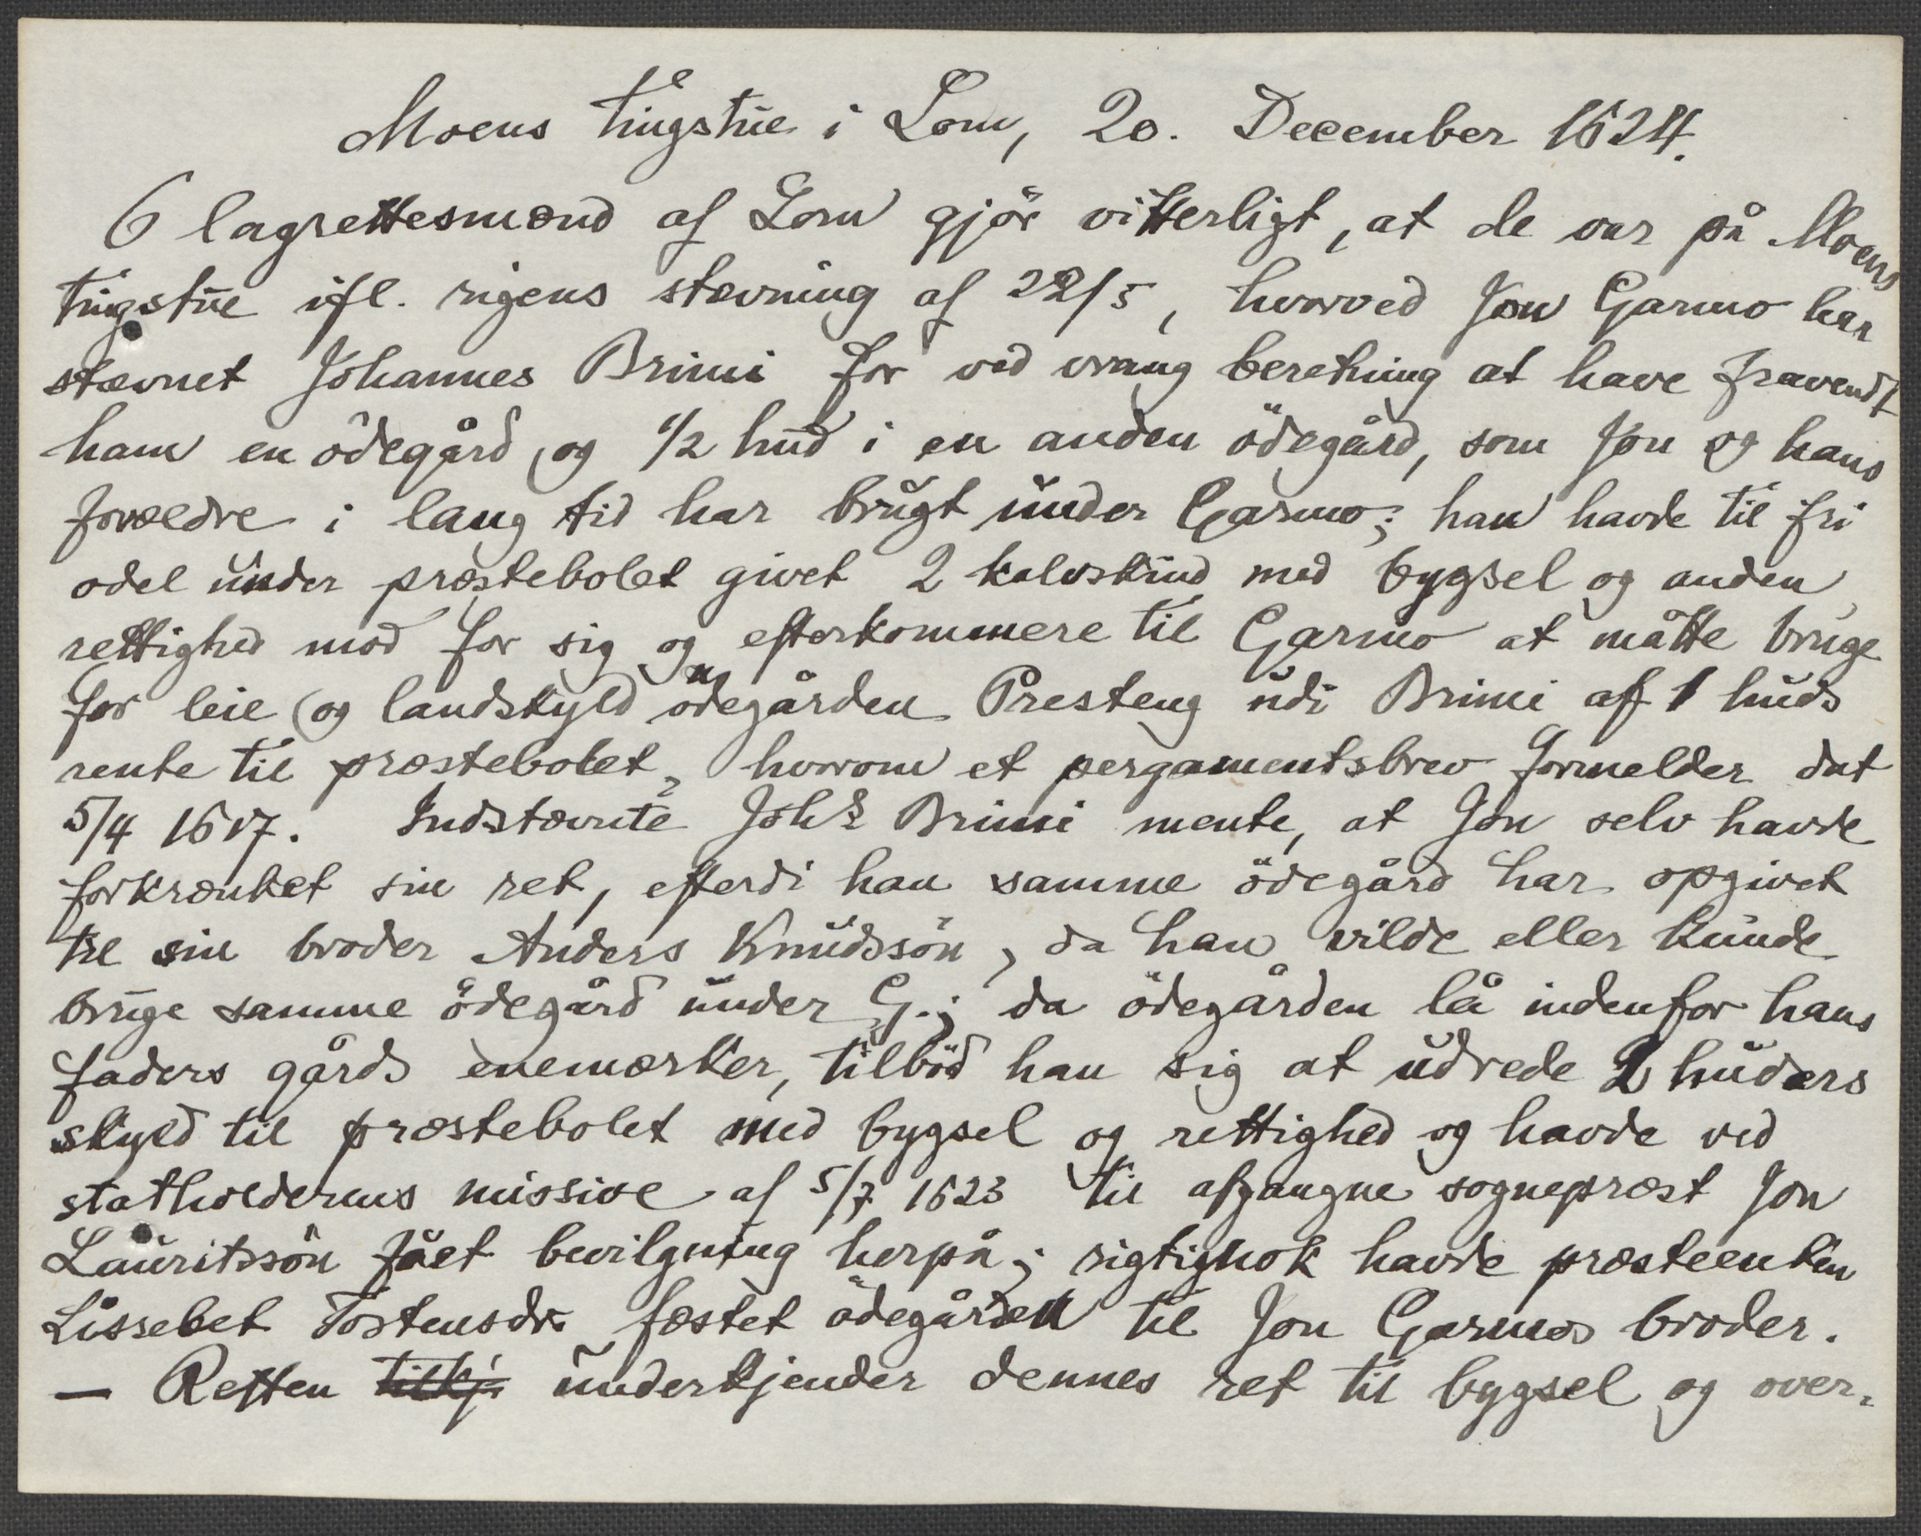 Moens tingstue i Lom, 20. December 1624.
6 lagrettesmænd af Lom gjör vitterligt, at de var på Moens
tingstue ifl. rigens stævning af 22/5, hvorved Jon Garmo har
stævnet Johannes Brimi for ved vrang beretning at have fravendt
ham en ödegård, og 1/2 hud i en anden ödegård, som Jon og hans
forældre i lang tid har brugt under Garmo; han havde til fri
odel under præstebolet givet 2 kalvskind med bygsel og anden
rettighed mod for sig og efterkommere til Garmo at måtte bruge
for leie (og landskyld) ödegården Presteng udi Brimi af 1 huds
rente til præstebolet, hvorom et pergamentsbrev formelder dat
5/4 1617. Indstævnte Johs Brimi mente, at Jon selv havde
forkrænket sin ret, efterdi han samme ödegård har opgivet
til sin broder Anders Knudssön, da han vilde eller kunde
bruge samme ödegård under G.; da ödegården lå indenfor hans
faders gårds enemærker, tilböd han sig at udrede 2 huders
skyld til præstebolet med bygsel og rettighed og havde ved
statholderens missive af 5/7 1623 til afgangne sognepræst Jon
Lauritssön fået bevilgning herpå; rigtignok havde præsteenken
Lissebet Tostensdr fæstet ödegården til Jon Garmos broder.
— Retten tilkj. underkjender dennes ret til bygsel og over-